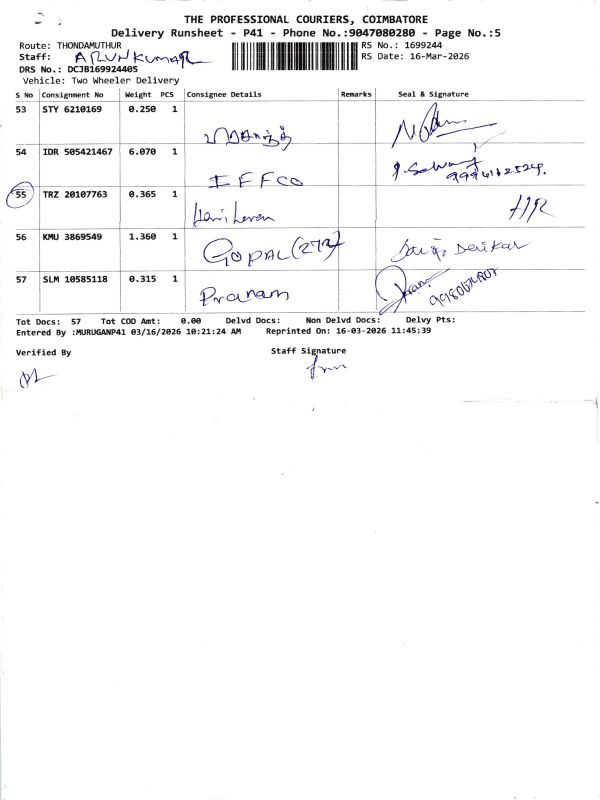 THE PROFESSIONAL COURIERS, COIMBATORE
Delivery Runsheet - P41 - Phone No.:9047080280 - Page No.:5
Route: THONDAMUTHUR
RS No.: 1699244
Staff: ARUNKUMAR
RS Date: 16-Mar-2026
DRS No.: DCJB169924405
Vehicle: Two Wheeler Delivery
S No Consignment No Weight PCS Consignee Details Remarks Seal & Signature
53 STY 6210169 0.250 1
54 IDR 505421467 6.070 1 IFFCO
55 TRZ 20107763 0.365 1
56 KMU 3869549 1.360 1 GOPAL (273)
57 SLM 10585118 0.315 1 Pranam
Tot Docs: 57 Tot COD Amt: 0.00 Delvd Docs: Non Delvd Docs: Delvy Pts:
Entered By :MURUGANP41 03/16/2026 10:21:24 AM Reprinted On: 16-03-2026 11:45:39
Verified By Staff Signature